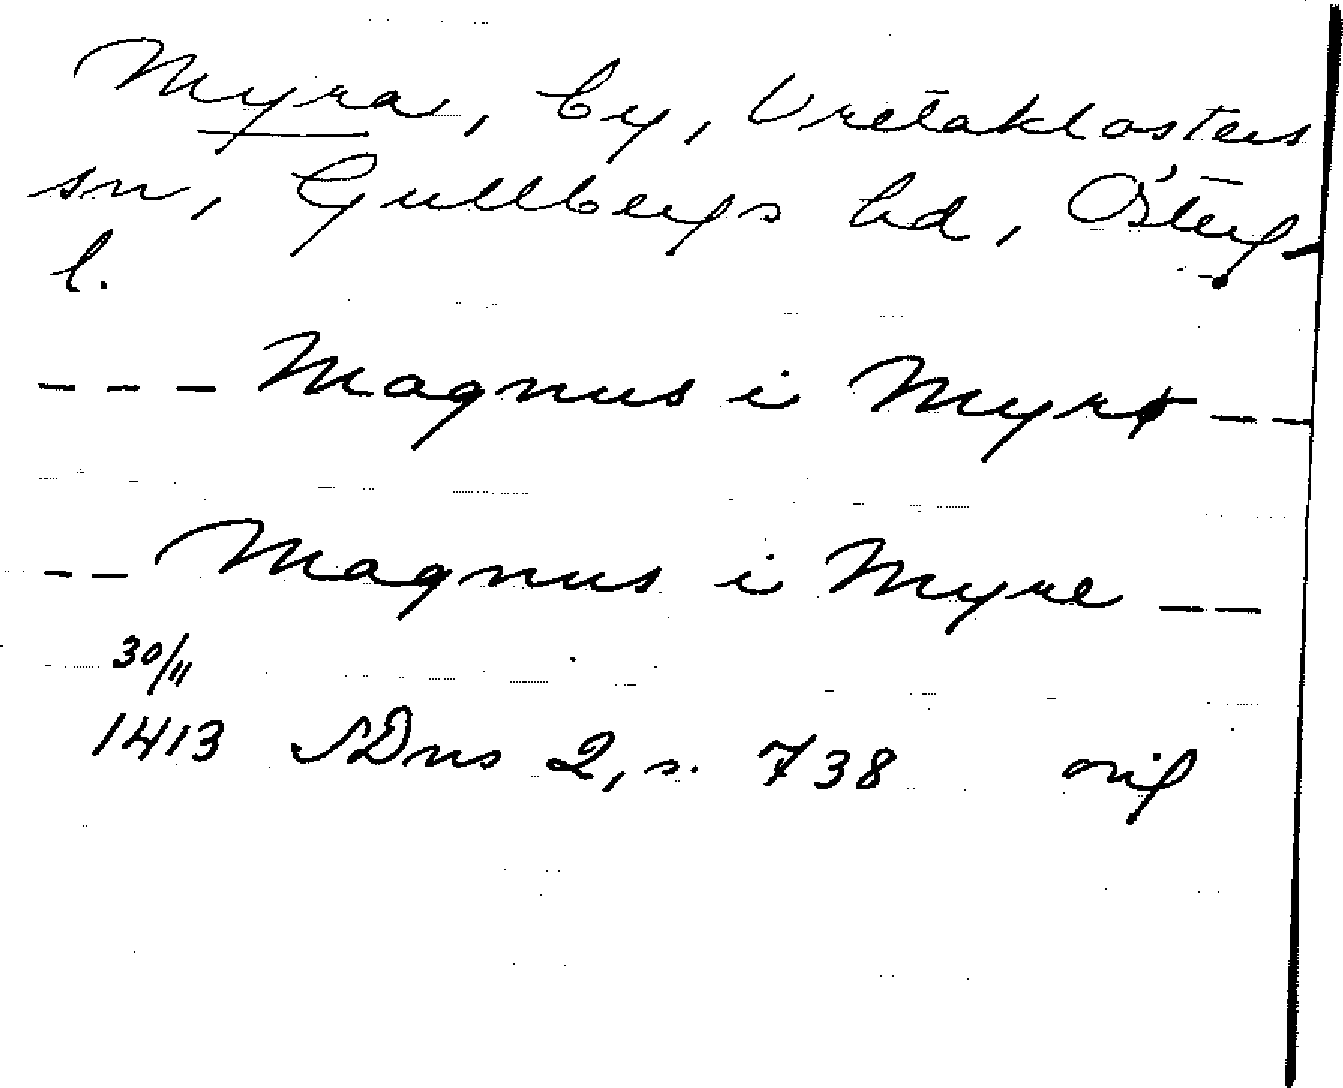 Myra, by, Vretaklosters
sn, Gullbergs hd, Österg.
l.
--- Magnus i Myr --
-- Magnus i Myre --
30/11
1413 SDns 2, s. 738 orig